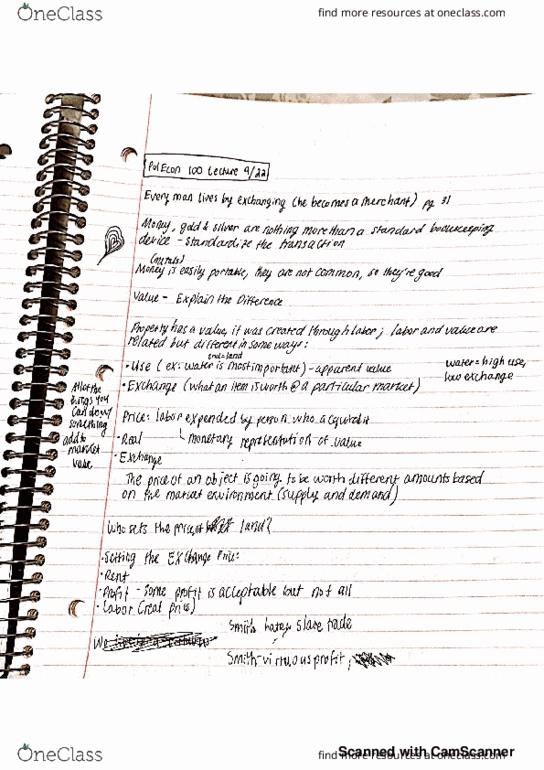 OneClass
find more resources at oneclass.com
Pol Econ 100 Lecture 9/22
Every man lives by exchanging (he becomes a merchant) pg 31
Money, gold & silver are nothing more than a standard bookkeeping
device - standardize the transaction
(metals)
Money is easily portable, they are not common, so they're good
Value - Explain the Difference
Property has a value, it was created through labor; labor and value are
related but different in some ways:
• Use (ex: water is most important) - apparent value
water = high use,
low exchange
• Exchange (what an item is worth @ a particular market)
All of the
things you
can do w/
something
add to
market
value
Price: labor expended by person who acquired it
• Real
monetary representation of value
• Exchange
The price of an object is going to be worth different amounts based
on the market environment (supply and demand)
Who sets the price of land?
• Setting the Exchange Price:
• Rent
• Profit - some profit is acceptable but not all
• Labor (real price)
Smith hates slave trade
We
Smith - virtuous profit,
OneClass
find more resources at oneclass.com
Scanned with CamScanner